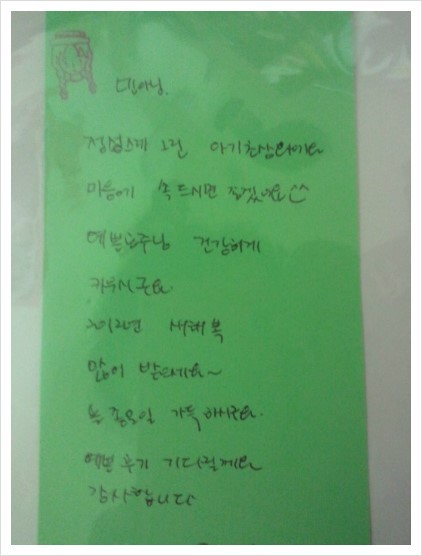 민아님.
정성스레 그린 아기초상화에요
마음에 쏙 드시면 좋겠어요^^
예쁜공주님 건강하게
키우시구요
2012년 새해 복
많이 받으세요~
좋은일 가득하시구요.
예쁜 후기 기다릴게요
감사합니다